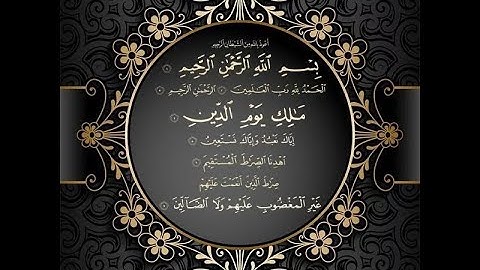 أعوذ بالله من الشيطان الرجيم
بِسْمِ اللَّهِ الرَّحْمَٰنِ الرَّحِيمِ
الْحَمْدُ لِلَّهِ رَبِّ الْعَالَمِينَ الرَّحْمَٰنِ الرَّحِيمِ
مَالِكِ يَوْمِ الدِّينِ
إِيَّاكَ نَعْبُدُ وَإِيَّاكَ نَسْتَعِينُ
اهْدِنَا الصِّرَاطَ الْمُسْتَقِيمَ
صِرَاطَ الَّذِينَ أَنْعَمْتَ عَلَيْهِمْ
غَيْرِ الْمَغْضُوبِ عَلَيْهِمْ وَلَا الضَّالِّينَ